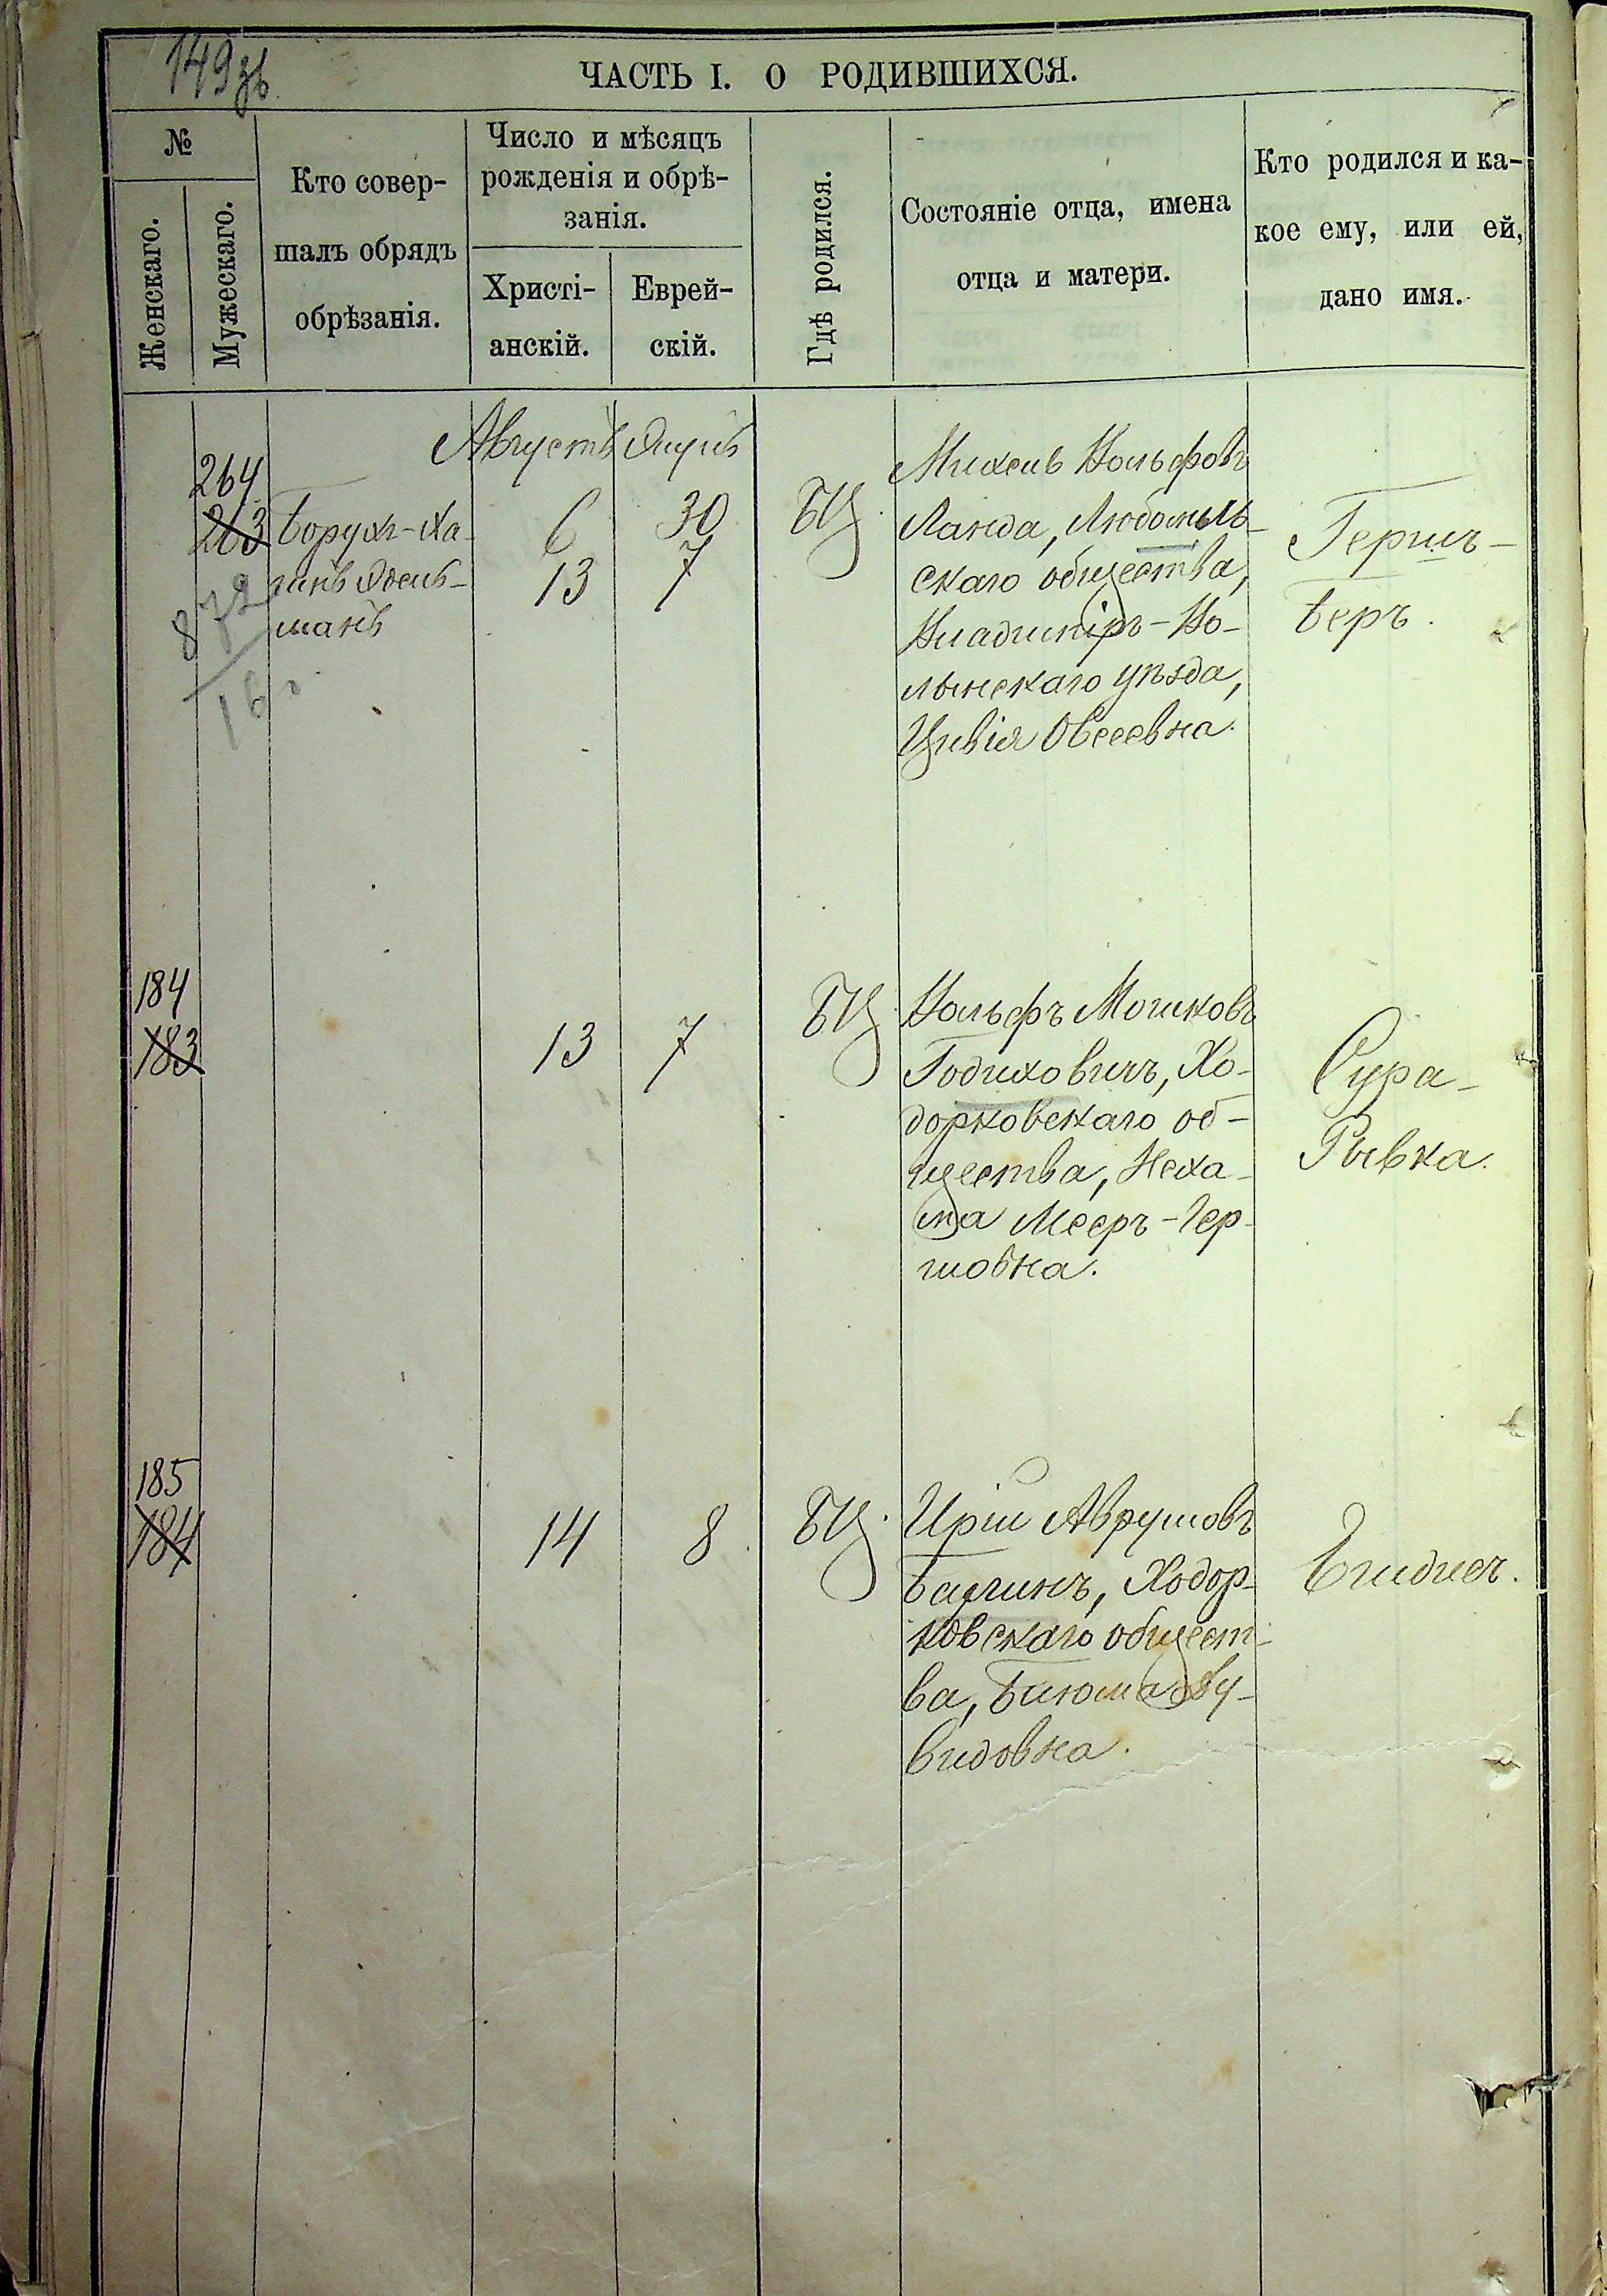 149 зв.
ЧАСТЬ I. О РОДИВШИХСЯ.
№
Женскаго.
Мужескаго.
Кто совер-
шалъ обрядъ
обрѣзанія.
Число и мѣсяцъ
рожденія и обрѣ-
занія.
Христі-
анскій.
Еврей-
скій.
Гдѣ родился.
Состояніе отца, имена
отца и матери.
Кто родился и ка-
кое ему, или ей,
дано имя.
Августъ
264
263
Борухъ-Ха-
манъ
6
13
30
7
БЦ.
Михель Вольфовъ
Ланда, Любомль-
скаго общества,
Владимiръ-Во-
лынскаго уѣзда,
Цивія Овсеевна.
Гершъ-
Беръ.
872
16
184
183
13
7
БЦ.
Вольфъ Мошковъ
Годиховичъ, Хо-
дорковскаго об-
щества, Неха-
ма Мееръ-Гер-
шовна.
Сура-
Рывка.
185
184
14
8
БЦ.
Ирiш Аврумовъ
Ходор-
ковскаго общест-
ва, Блюма Ду-
видовна.